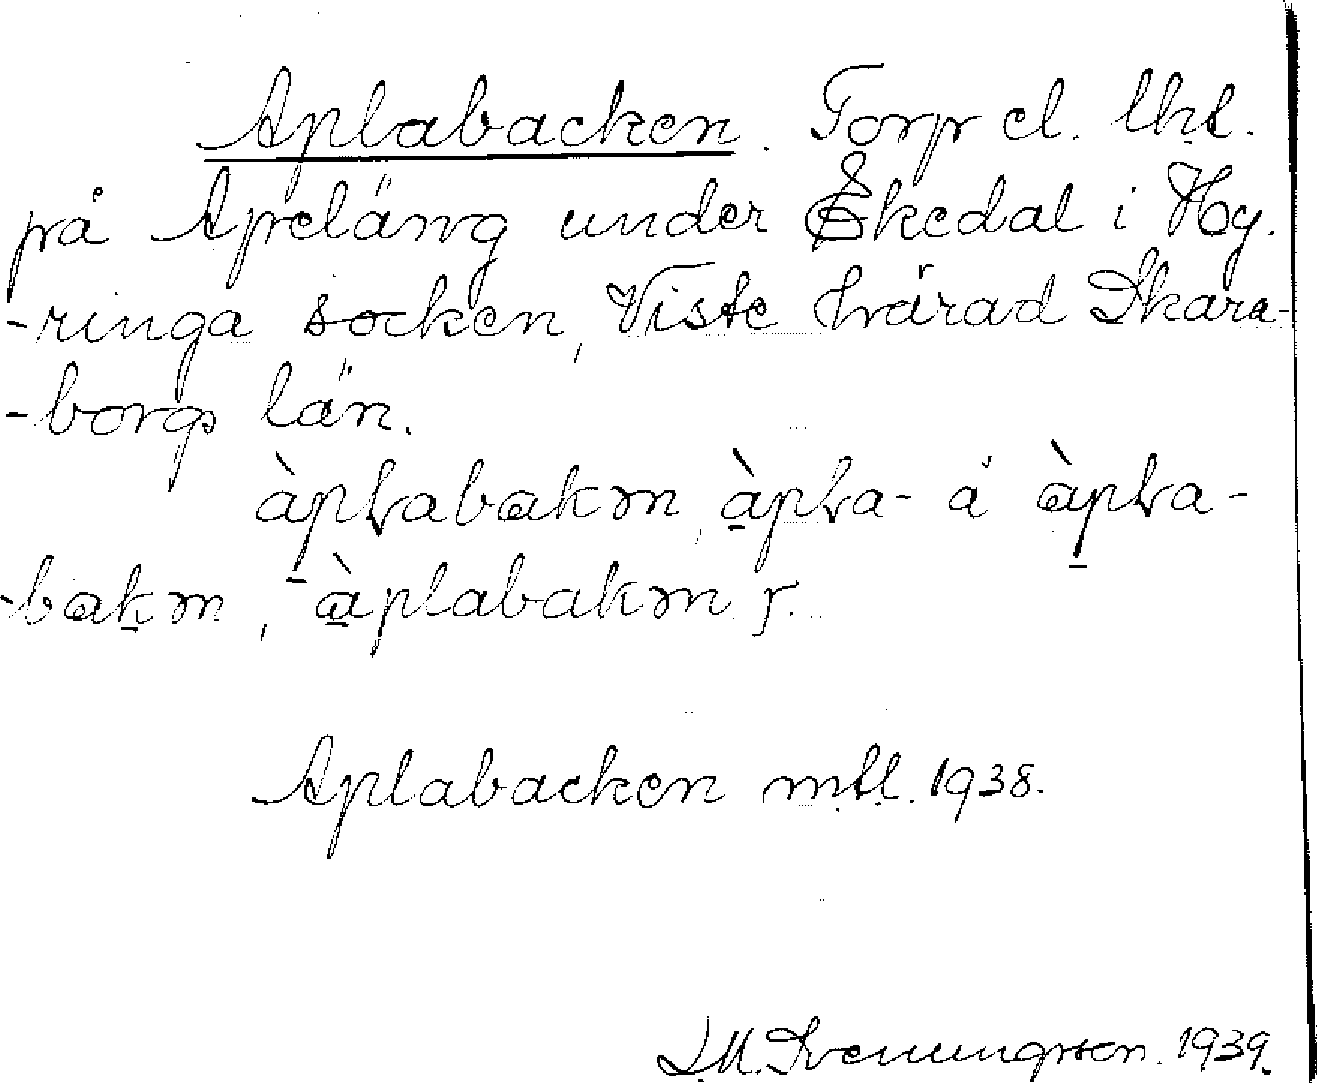 Aplabacken. Torp el. lht.
på Apeläng under Ekedal i Hy-
-ringa socken, Viste härad Skara-
-borgs län.
àpɬabakən, àpɬa- å àpɬa-
-bakən, àplabakən r.
Aplabacken mtl. 1938.
1939.